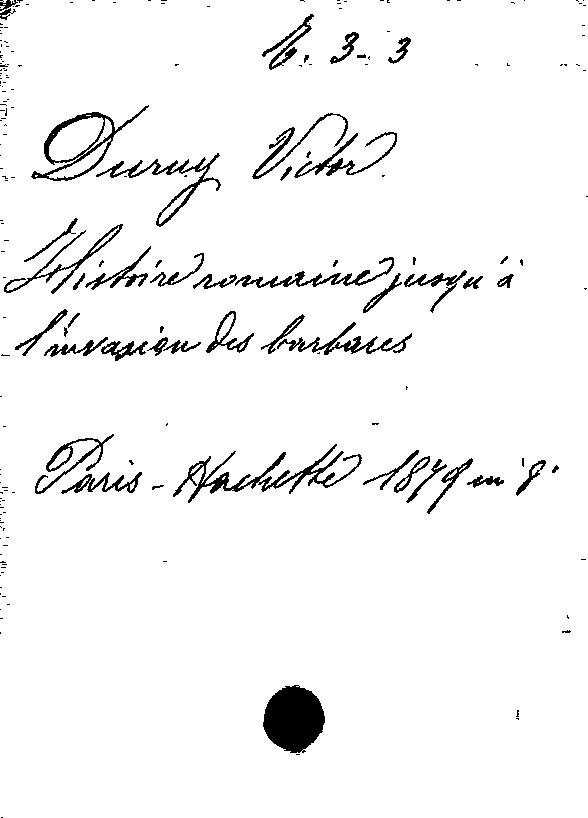 E. 3-3
Duruy Victor.
Histoire romaine jusqu'à
l'invasion des barbares
Paris - Hachette 1879 in 8°